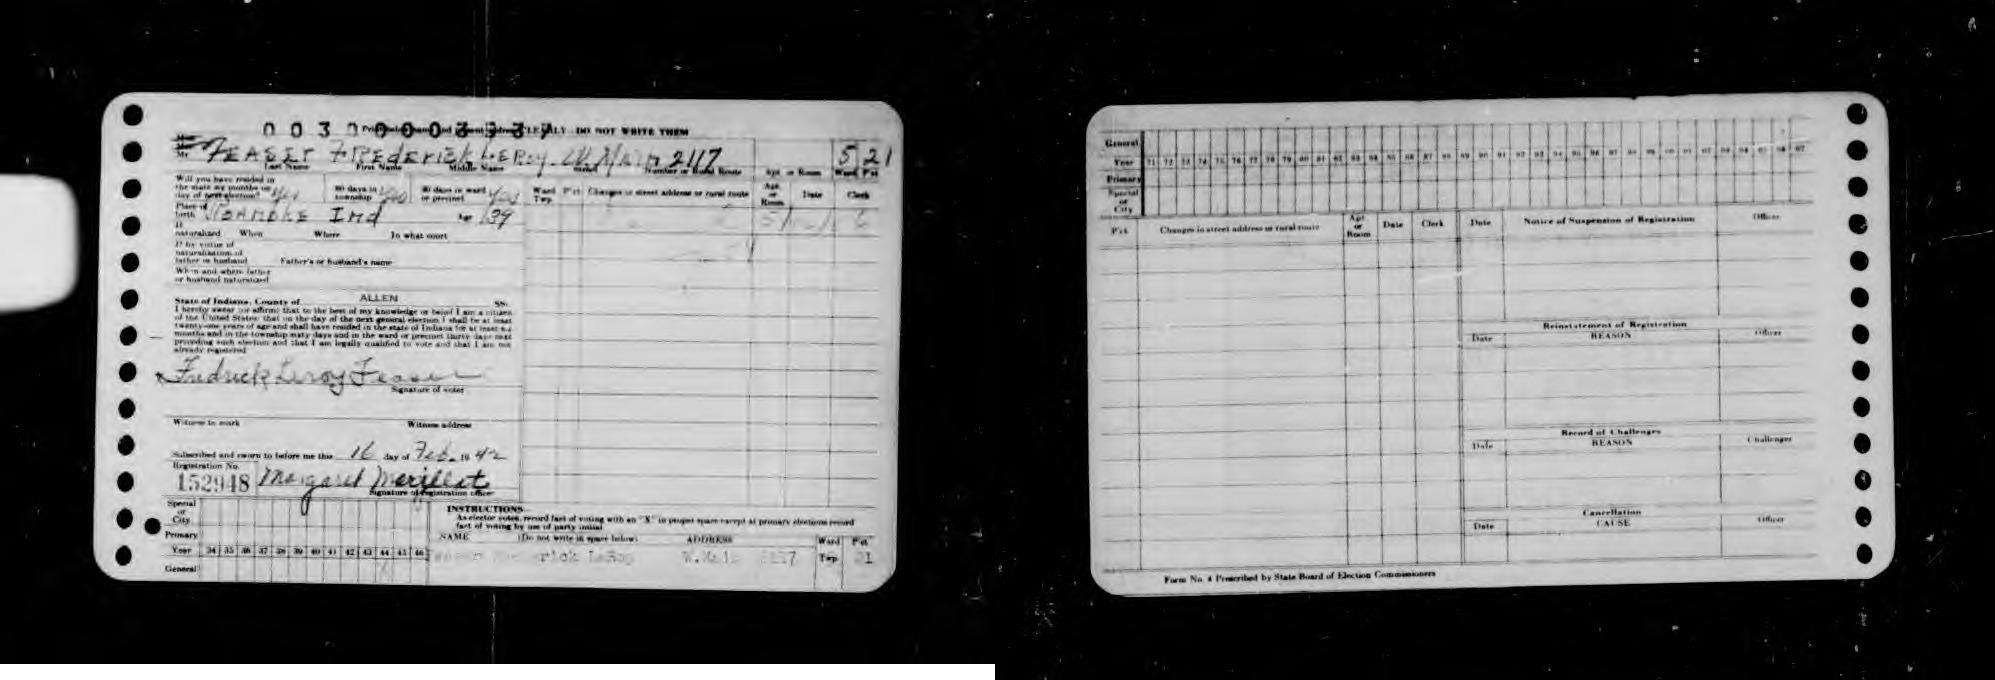 DO NOT WRITE THEM
Mr FEASER FREdERICK LERoy W. Main 2117 5 21
Last Name First Name Middle Name Street Number or Rural Route Apt. or Room Ward Pct
Will you have resided in
the state six months on
day of next election? 60 days in township 30 days in ward or precinct
Ward Twp. Pct Changes in street address or rural route Apt. or Room Date Clerk
Place of birth ROANOKE Ind Age 39
If naturalized When Where In what court
If by virtue of
naturalization of
father or husband Father's or husband's name
When and where father
or husband naturalized
State of Indiana, County of ALLEN SS:
I hereby swear (or affirm) that to the best of my knowledge or belief I am a citizen
of the United States; that on the day of the next general election I shall be at least
twenty-one years of age and shall have resided in the state of Indiana for at least six
months and in the township sixty days and in the ward or precinct thirty days next
preceding such election and that I am legally qualified to vote and that I am not
already registered
x Fredrick Leroy Feaser
Signature of voter
Witness to mark Witness address
Subscribed and sworn to before me this 16 day of Feb. 19 42
Registration No.
152948 Margaret Marillat
Signature of registration officer
Special or City
Primary
Year 34 35 36 37 38 39 40 41 42 43 44 45 46
General
INSTRUCTIONS
As elector votes, record fact of voting with an "X" in proper space except at primary elections record
fact of voting by use of party initial
NAME (Do not write in space below) ADDRESS Ward Pct
LeRoy W.Main 2117 Twp. 21
General
Year 71 72 73 74 75 76 77 78 79 80 81 82 83 84 85 86 87 88 89 90 91 92 93 94 95 96 97 98 99 00 01 02 03 04 05 06 07
Primary
Special or City
Pct. Changes in street address or rural route Apt. or Room Date Clerk Date Notice of Suspension of Registration Officer
Reinstatement of Registration
Date REASON Officer
Record of Challenges
Date REASON Challenger
Cancellation
Date CAUSE Officer
Form No. 4 Prescribed by State Board of Election Commissioners